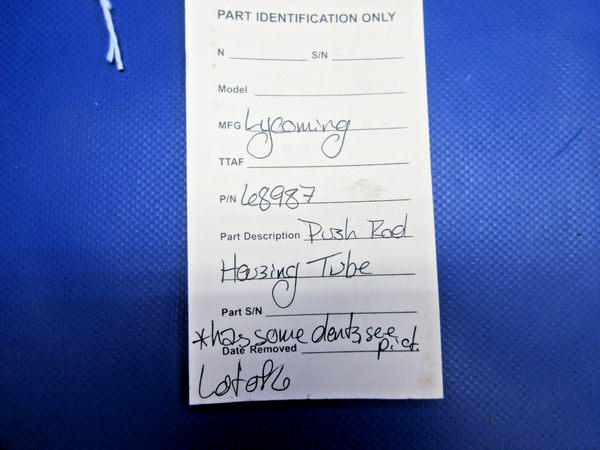 PART IDENTIFICATION ONLY
N S/N
Model
MFG Lycoming
TTAF
P/N 68987
Part Description Push Rod
Housing Tube
Part S/N
*has some dents, see
Date Removed pict.
Lot of 6